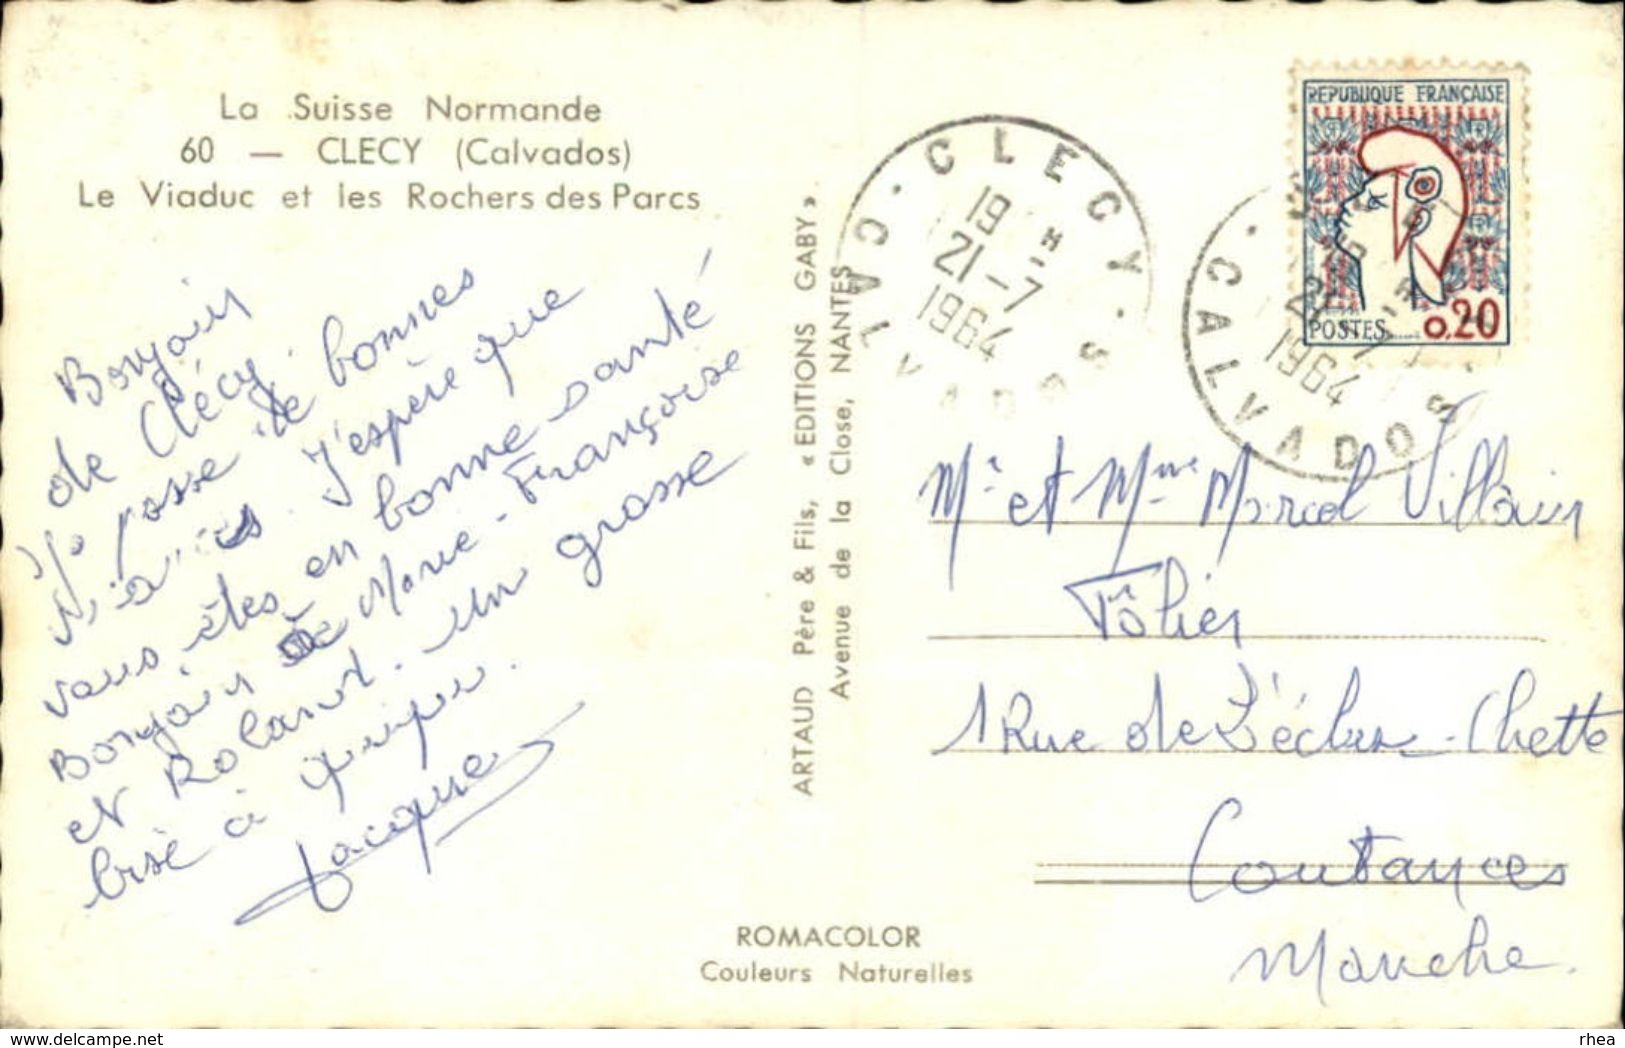 La Suisse Normande
60 — CLECY (Calvados)
Le Viaduc et les Rochers des Parcs
Bonjour
de Clécy.
Je passe de bonnes
J'espère que
vous êtes en bonne santé
Bonjour de Marie-Françoise
et Roland. Un grosse
bisé à
Jacques
ARTAUD Père & Fils, « EDITIONS GABY »
Avenue de la Close, NANTES
ROMACOLOR
Couleurs Naturelles
CLECY
CALVADOS
19 H
21-7
1964
CALVADOS
1964
REPUBLIQUE FRANÇAISE
POSTES 0,20
Mr et Mme Marcel Villain
Tôlier
1 Rue de L'écluse-Chette
Coutances
Manche.
www.delcampe.net
rhea